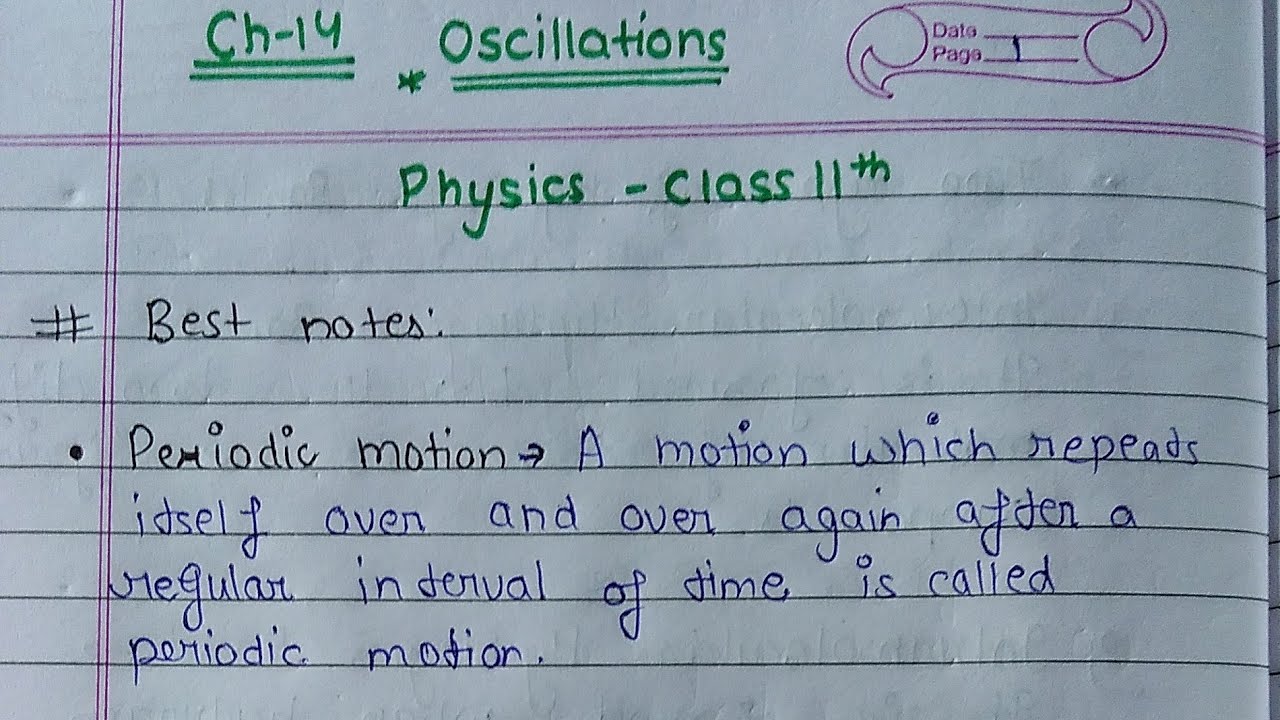 Ch-14 * Oscillations
Date
Page 1
Physics - Class 11th
# Best notes:
• Periodic motion → A motion which repeats
itself over and over again after a
regular interval of time is called
periodic motion.